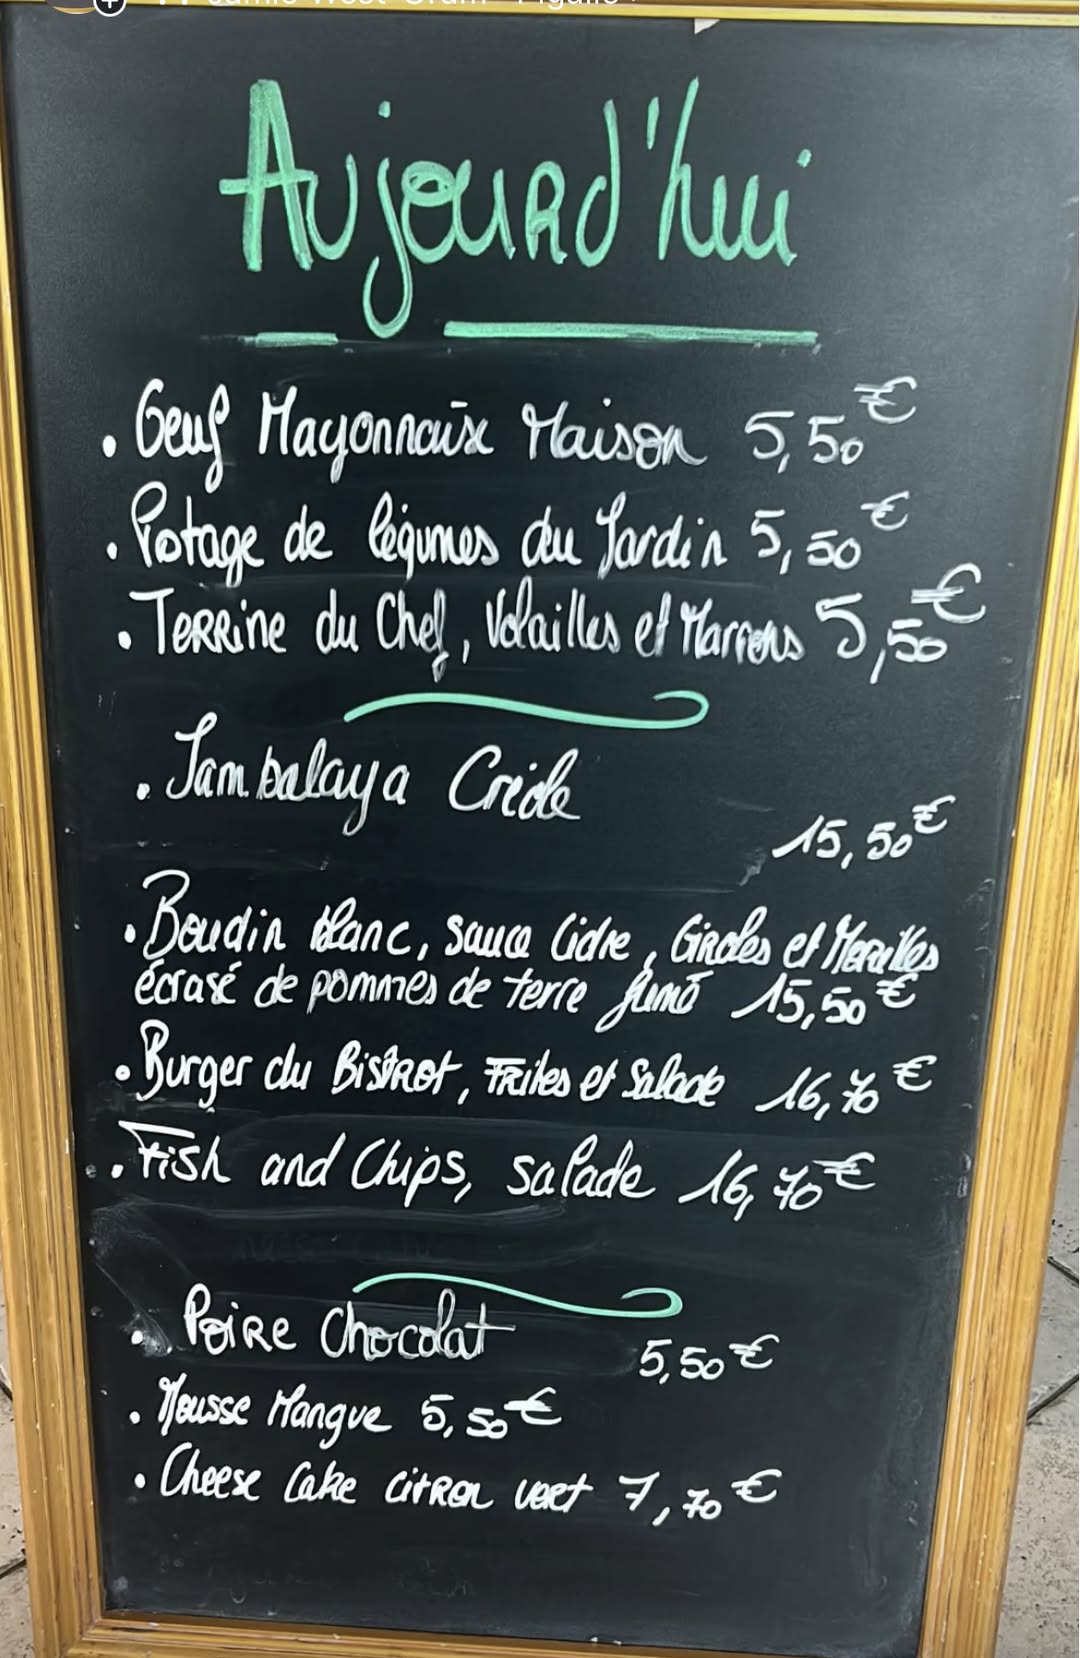 Aujourd'hui
• Oeuf Mayonnaise Maison 5,50€
• Potage de légumes du Jardin 5,50€
• Terrine du Chef, Volailles et Marrons 5,50€
• Jambalaya Créole
15,50€
• Boudin blanc, sauce Cidre, Giroles et Morilles
écrasé de pommes de terre fumé 15,50€
• Burger du Bistrot, Frites et Salade 16,70€
• Fish and Chips, salade 16,70€
• Poire Chocolat 5,50€
• Mousse Mangue 5,50€
• Cheese Cake citron vert 7,70€